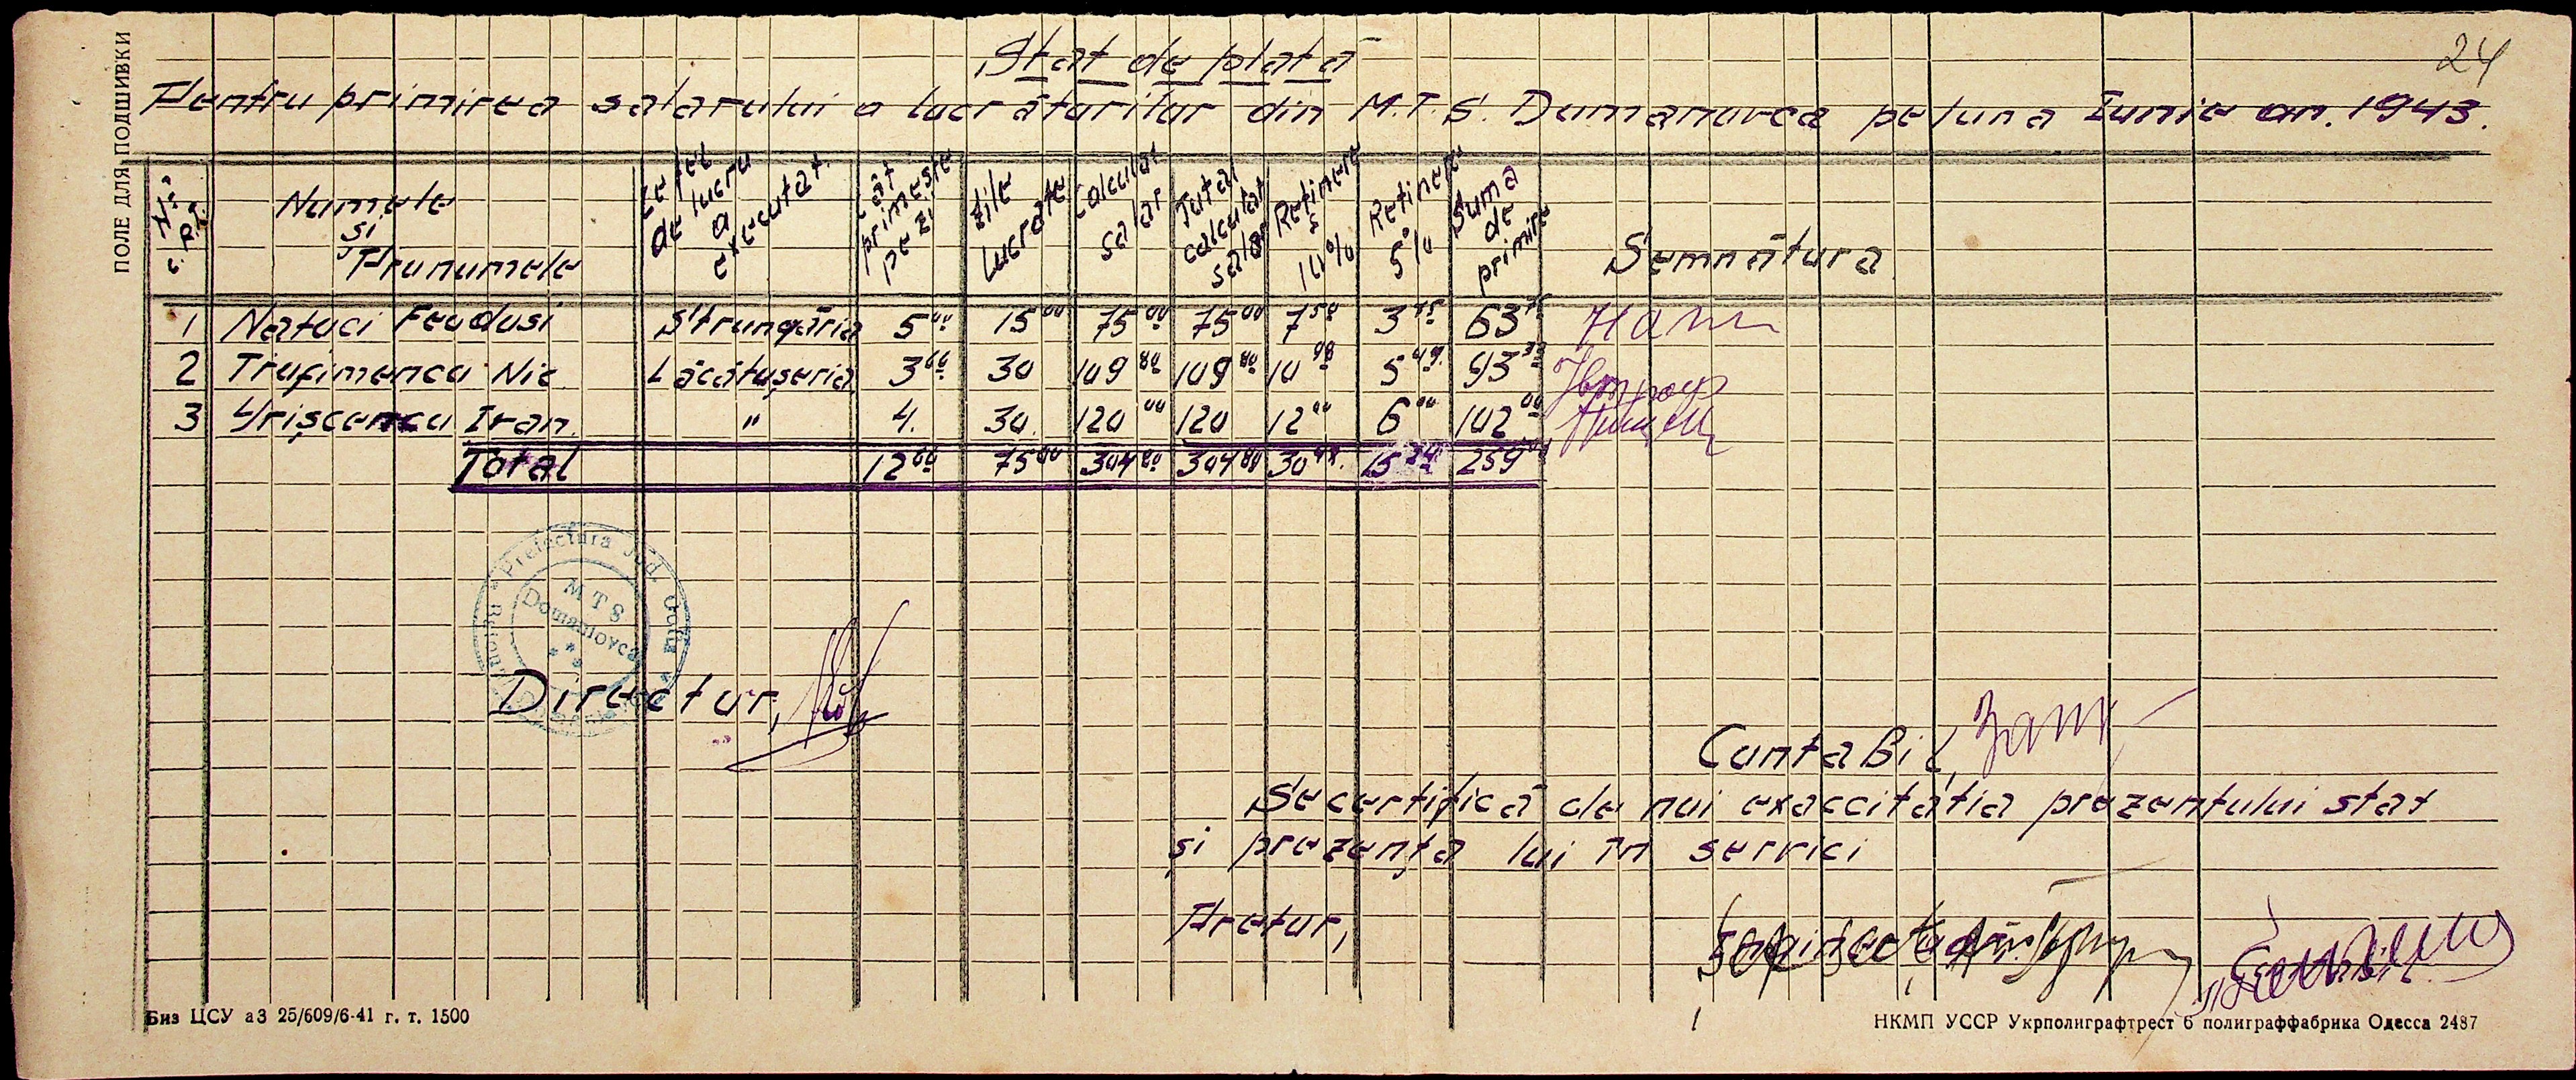 24
Stat de plată
Pentru primirea salarului a lucrătorilor din M.T.S. Dumanovca pe luna Iunie an. 1943.
ПОЛЕ ДЛЯ ПОДШИВКИ
Numele și Pronumele
Ce fel de lucru a executat.
Cât primește pe zi
Zile lucrate
Calculat salar
Total calculat salar
Retinere 10%
Retinere 5%
Suma de primire
Semnătura
1 Natoci Feodosi Strungăria 5 00 15 00 75 00 75 00 7 50 3 75 63 75
2 Trofimenco Nic Lăcătușeria 3 66 30 109 80 109 80 10 98 5 49 93 33
3 Grișcenco Ivan. " 4. 30. 120 00 120 12 00 6 00 102 00
Total 12 66 75 00 304 80 304 80 30 48. 15 24 259
Prefectura Jud. Golta
MTS
Domaniovca
Director,
Contabil,
Se certifică de noi exaccitatia prezentului stat
și prezența lui în servici
Pretor,
Биз ЦСУ аЗ 25/609/6-41 г. т. 1500
НКМП УССР Укрполиграфтрест 6 полиграффабрика Одесса 2487